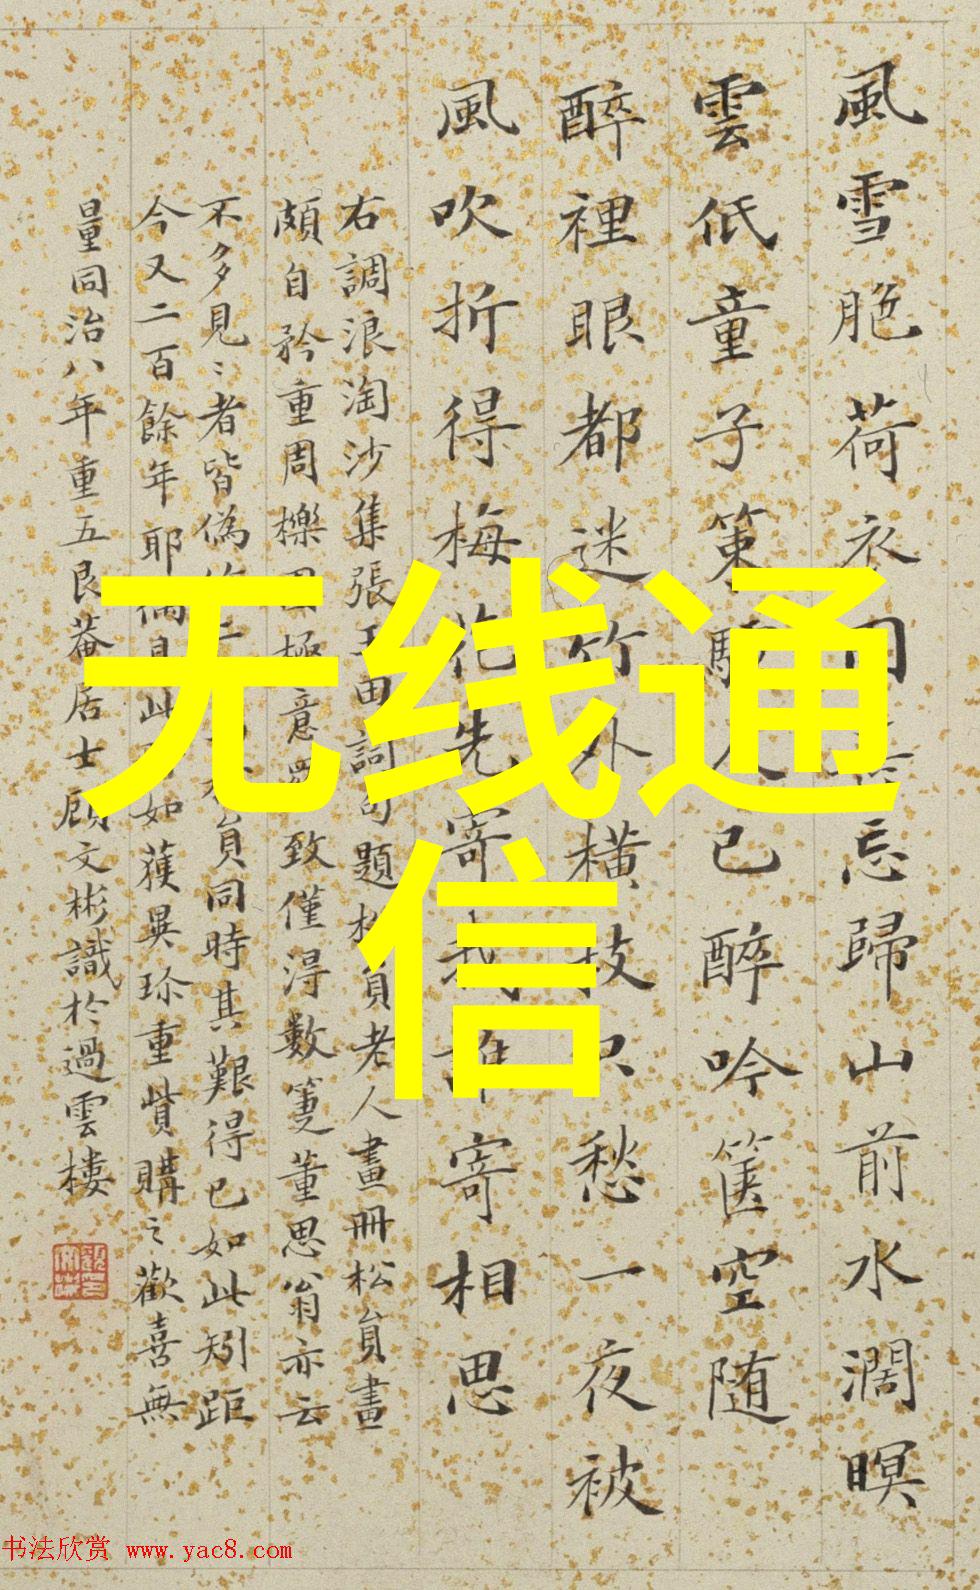 風雪脃荷衣忘歸山前水濶暝
雲低童子策驢人已醉吟篋空随
醉裡眼都迷竹外橫枝只愁一夜被
風吹折得梅花先寄我寄相思
右調浪淘沙集張玉田詞句題松員老人畫冊松員畫
頗自矜重周櫟園極意羅致僅得數箑董思翁亦云
不多見〻者皆偽員同時其艱得已如此矧距
今又二百餘年耶偶見此如獲異珍重貲購之歡喜無
量同治八年重五艮菴居士顧文彬識於過雲樓
无线通
信
书法欣赏 www.yac8.com